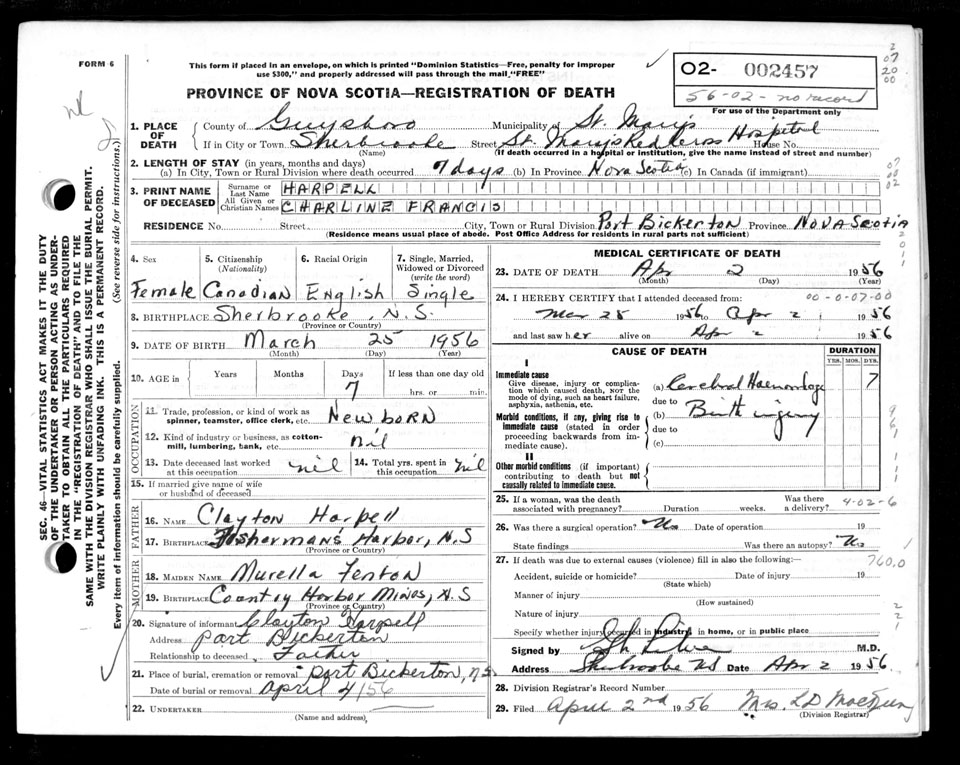 FORM 6
This form if placed in an envelope, on which is printed "Dominion Statistics—Free, penalty for improper
use $300," and properly addressed will pass through the mail "FREE"
PROVINCE OF NOVA SCOTIA—REGISTRATION OF DEATH
02- 002457
56-02 - no record
For use of the Department only
1. PLACE OF DEATH
County of Guysboro Municipality of St. Marys
If in City or Town Sherbrooke Street St. Marys Red Cross Hospital House No.
(Name) (If death occurred in a hospital or institution, give the name instead of street and number)
2. LENGTH OF STAY (in years, months and days)
(a) In City, Town or Rural Division where death occurred 7 days (b) In Province Nova Scotia (c) In Canada (if immigrant)
3. PRINT NAME OF DECEASED
Surname or Last Name HARPELL
All Given or Christian Names CHARLINE FRANCIS
RESIDENCE No. Street City, Town or Rural Division Port Bickerton Province Nova Scotia
(Residence means usual place of abode. Post Office Address for residents in rural parts not sufficient)
4. Sex 5. Citizenship (Nationality) 6. Racial Origin 7. Single, Married, Widowed or Divorced (write the word)
Female Canadian English Single
8. BIRTHPLACE Sherbrooke, N.S.
(Province or Country)
9. DATE OF BIRTH March 25 1956
(Month) (Day) (Year)
10. AGE in Years Months Days If less than one day old
7 hrs. or min.
OCCUPATION
11. Trade, profession, or kind of work as spinner, teamster, office clerk, etc. Newborn
12. Kind of industry or business, as cotton-mill, lumbering, bank, etc. nil
13. Date deceased last worked at this occupation nil 14. Total yrs. spent in this occupation nil
15. If married give name of wife or husband of deceased
FATHER
16. NAME Clayton Harpell
17. BIRTHPLACE Fisherman's Harbor, N.S
(Province or Country)
MOTHER
18. MAIDEN NAME Murella Fenton
19. BIRTHPLACE Country Harbor Mines, N.S
(Province or Country)
20. Signature of informant Clayton Harpell
Address Port Bickerton
Relationship to deceased Father
21. Place of burial, cremation or removal Port Bickerton, N.S.
Date of burial or removal April 4/56
22. UNDERTAKER
(Name and address)
MEDICAL CERTIFICATE OF DEATH
23. DATE OF DEATH Apr 2 1956
(Month) (Day) (Year)
24. I HEREBY CERTIFY that I attended deceased from: 00-0-07-00
Mar 25 1956 to Apr 2 1956
and last saw her alive on Apr 2 1956
CAUSE OF DEATH DURATION
YRS. MOS. DYS.
I
Immediate cause
Give disease, injury or complication which caused death, NOT the mode of dying, such as heart failure, asphyxia, asthenia, etc.
(a) Cerebral Haemorrhage 7
due to
Morbid conditions, if any, giving rise to immediate cause (stated in order proceeding backwards from immediate cause).
(b) Birth injury
due to
(c)
II
Other morbid conditions (if important) contributing to death but not causally related to immediate cause.
25. If a woman, was the death associated with pregnancy? Duration weeks. Was there a delivery? 4-02-6
26. Was there a surgical operation? No Date of operation 19
State findings Was there an autopsy? No
27. If death was due to external causes (violence) fill in also the following:— 760,0
Accident, suicide or homicide? Date of injury 19
(State which)
Manner of injury
(How sustained)
Nature of injury
Specify whether injury occurred in industry, in home, or in public place
Signed by M.D.
Address Sherbrooke NS Date Apr 2 1956
28. Division Registrar's Record Number
29. Filed April 2nd 1956 Mrs. L D
(Division Registrar)
SEC. 46—VITAL STATISTICS ACT MAKES IT THE DUTY
OF THE UNDERTAKER OR PERSON ACTING AS UNDER-
TAKER TO OBTAIN ALL THE PARTICULARS REQUIRED
IN THE "REGISTRATION OF DEATH" AND TO FILE THE
SAME WITH THE DIVISION REGISTRAR WHO SHALL ISSUE THE BURIAL PERMIT.
WRITE PLAINLY WITH UNFADING INK. THIS IS A PERMANENT RECORD.
Every item of information should be carefully supplied. (See reverse side for instructions.)